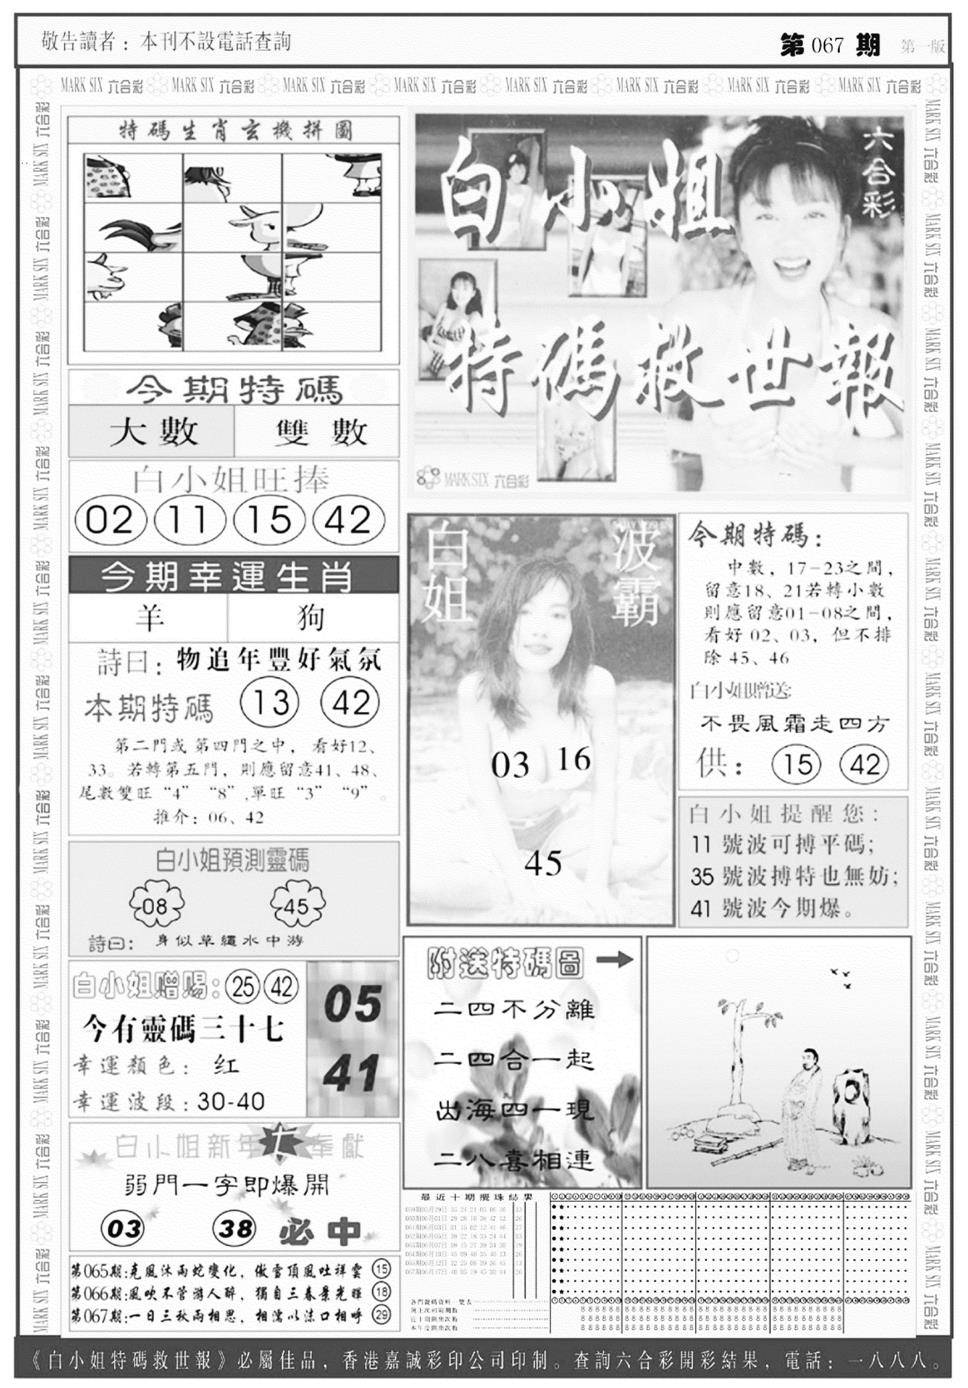 敬告讀者：本刊不設電話查詢
第 067 期 第一版
MARK SIX 六合彩 MARK SIX 六合彩 MARK SIX 六合彩 MARK SIX 六合彩 MARK SIX 六合彩 MARK SIX 六合彩 MARK SIX 六合彩 MARK SIX 六合彩
特碼生肖玄機拼圖
今期特碼
大數 雙數
白小姐旺捧
02 11 15 42
今期幸運生肖
羊 狗
詩曰：物追年豐好氣氛
本期特碼 13 42
第二門或 第四門之中，看好12、
33。若轉第五門，則應留意41、48、
尾數雙旺“4”“8”,單旺“3”“9”。
推介：06、42
白小姐預測靈碼
08 45
詩曰：身似草繩水中游
白小姐贈賜：25 42
今有靈碼三十七
幸運顏色：红
幸運波段：30-40
05
41
白小姐新年 奉獻
弱門一字即爆開
03 38 必中
第065期:克風沐雨蛇變化，傲雪頂風吐祥雲 15
第066期:風吹不管游人醉，獨自三春景光暉 18
第067期:一日三秋兩相思，相濡以沫口相呼 29
白小姐
六合彩
特碼救世報
MARK SIX 六合彩
白姐 波霸
03 16
45
今期特碼：
中數，17-23之間，
留意18、21若轉小數
則應留意01-08之間，
看好 02、03，但不排
除 45、46
白小姐贈送:
不畏風霜走四方
供：15 42
白小姐提醒您：
11 號波可搏平碼；
35 號波搏特也無妨；
41 號波今期爆。
附送特碼圖
二四不分離
二四合一起
出海四一現
二八喜相連
最近十期攪珠結果
《白小姐特碼救世報》必屬佳品，香港嘉誠彩印公司印制。查詢六合彩開彩結果，電話：一八八八。